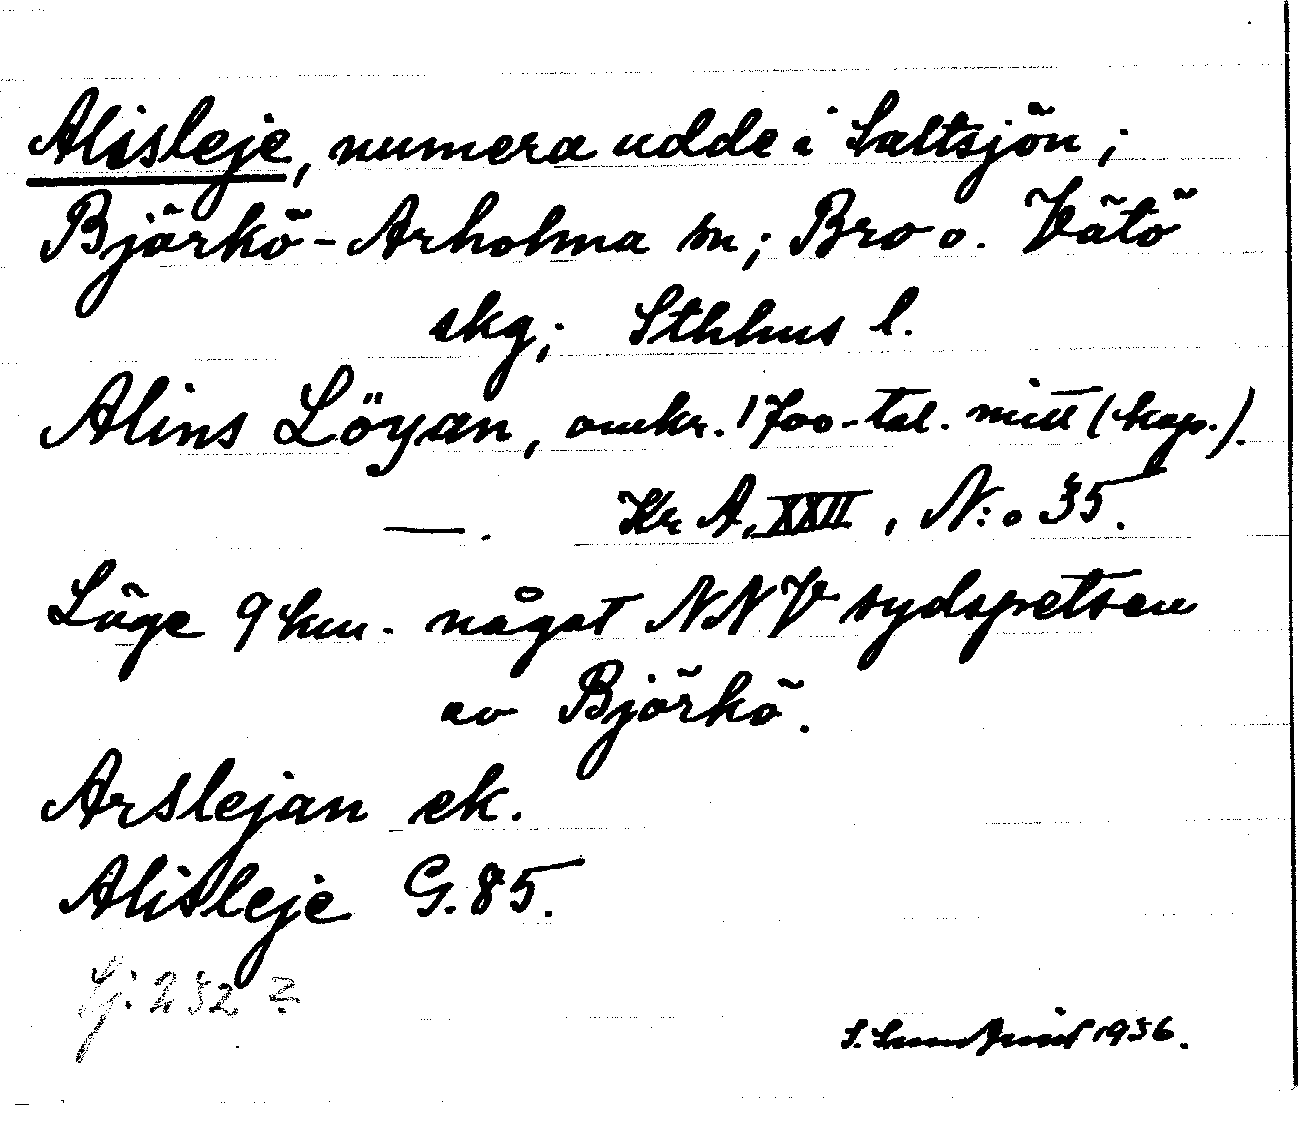 Alisleje, numera udde i Saltsjön;
Björkö-Arholma sn; Bro o. Vätö
skg; Sthhus l.
Alins Löyan, omkr. 1700-tal. mitt (kop.).
—. Kr. A. XXII, N:o 35.
Läge 9 km. något NNV sydspetsen
av Björkö.
Arslejan ek.
Alisleje G. 85.
Sj. 252
S. 1936.